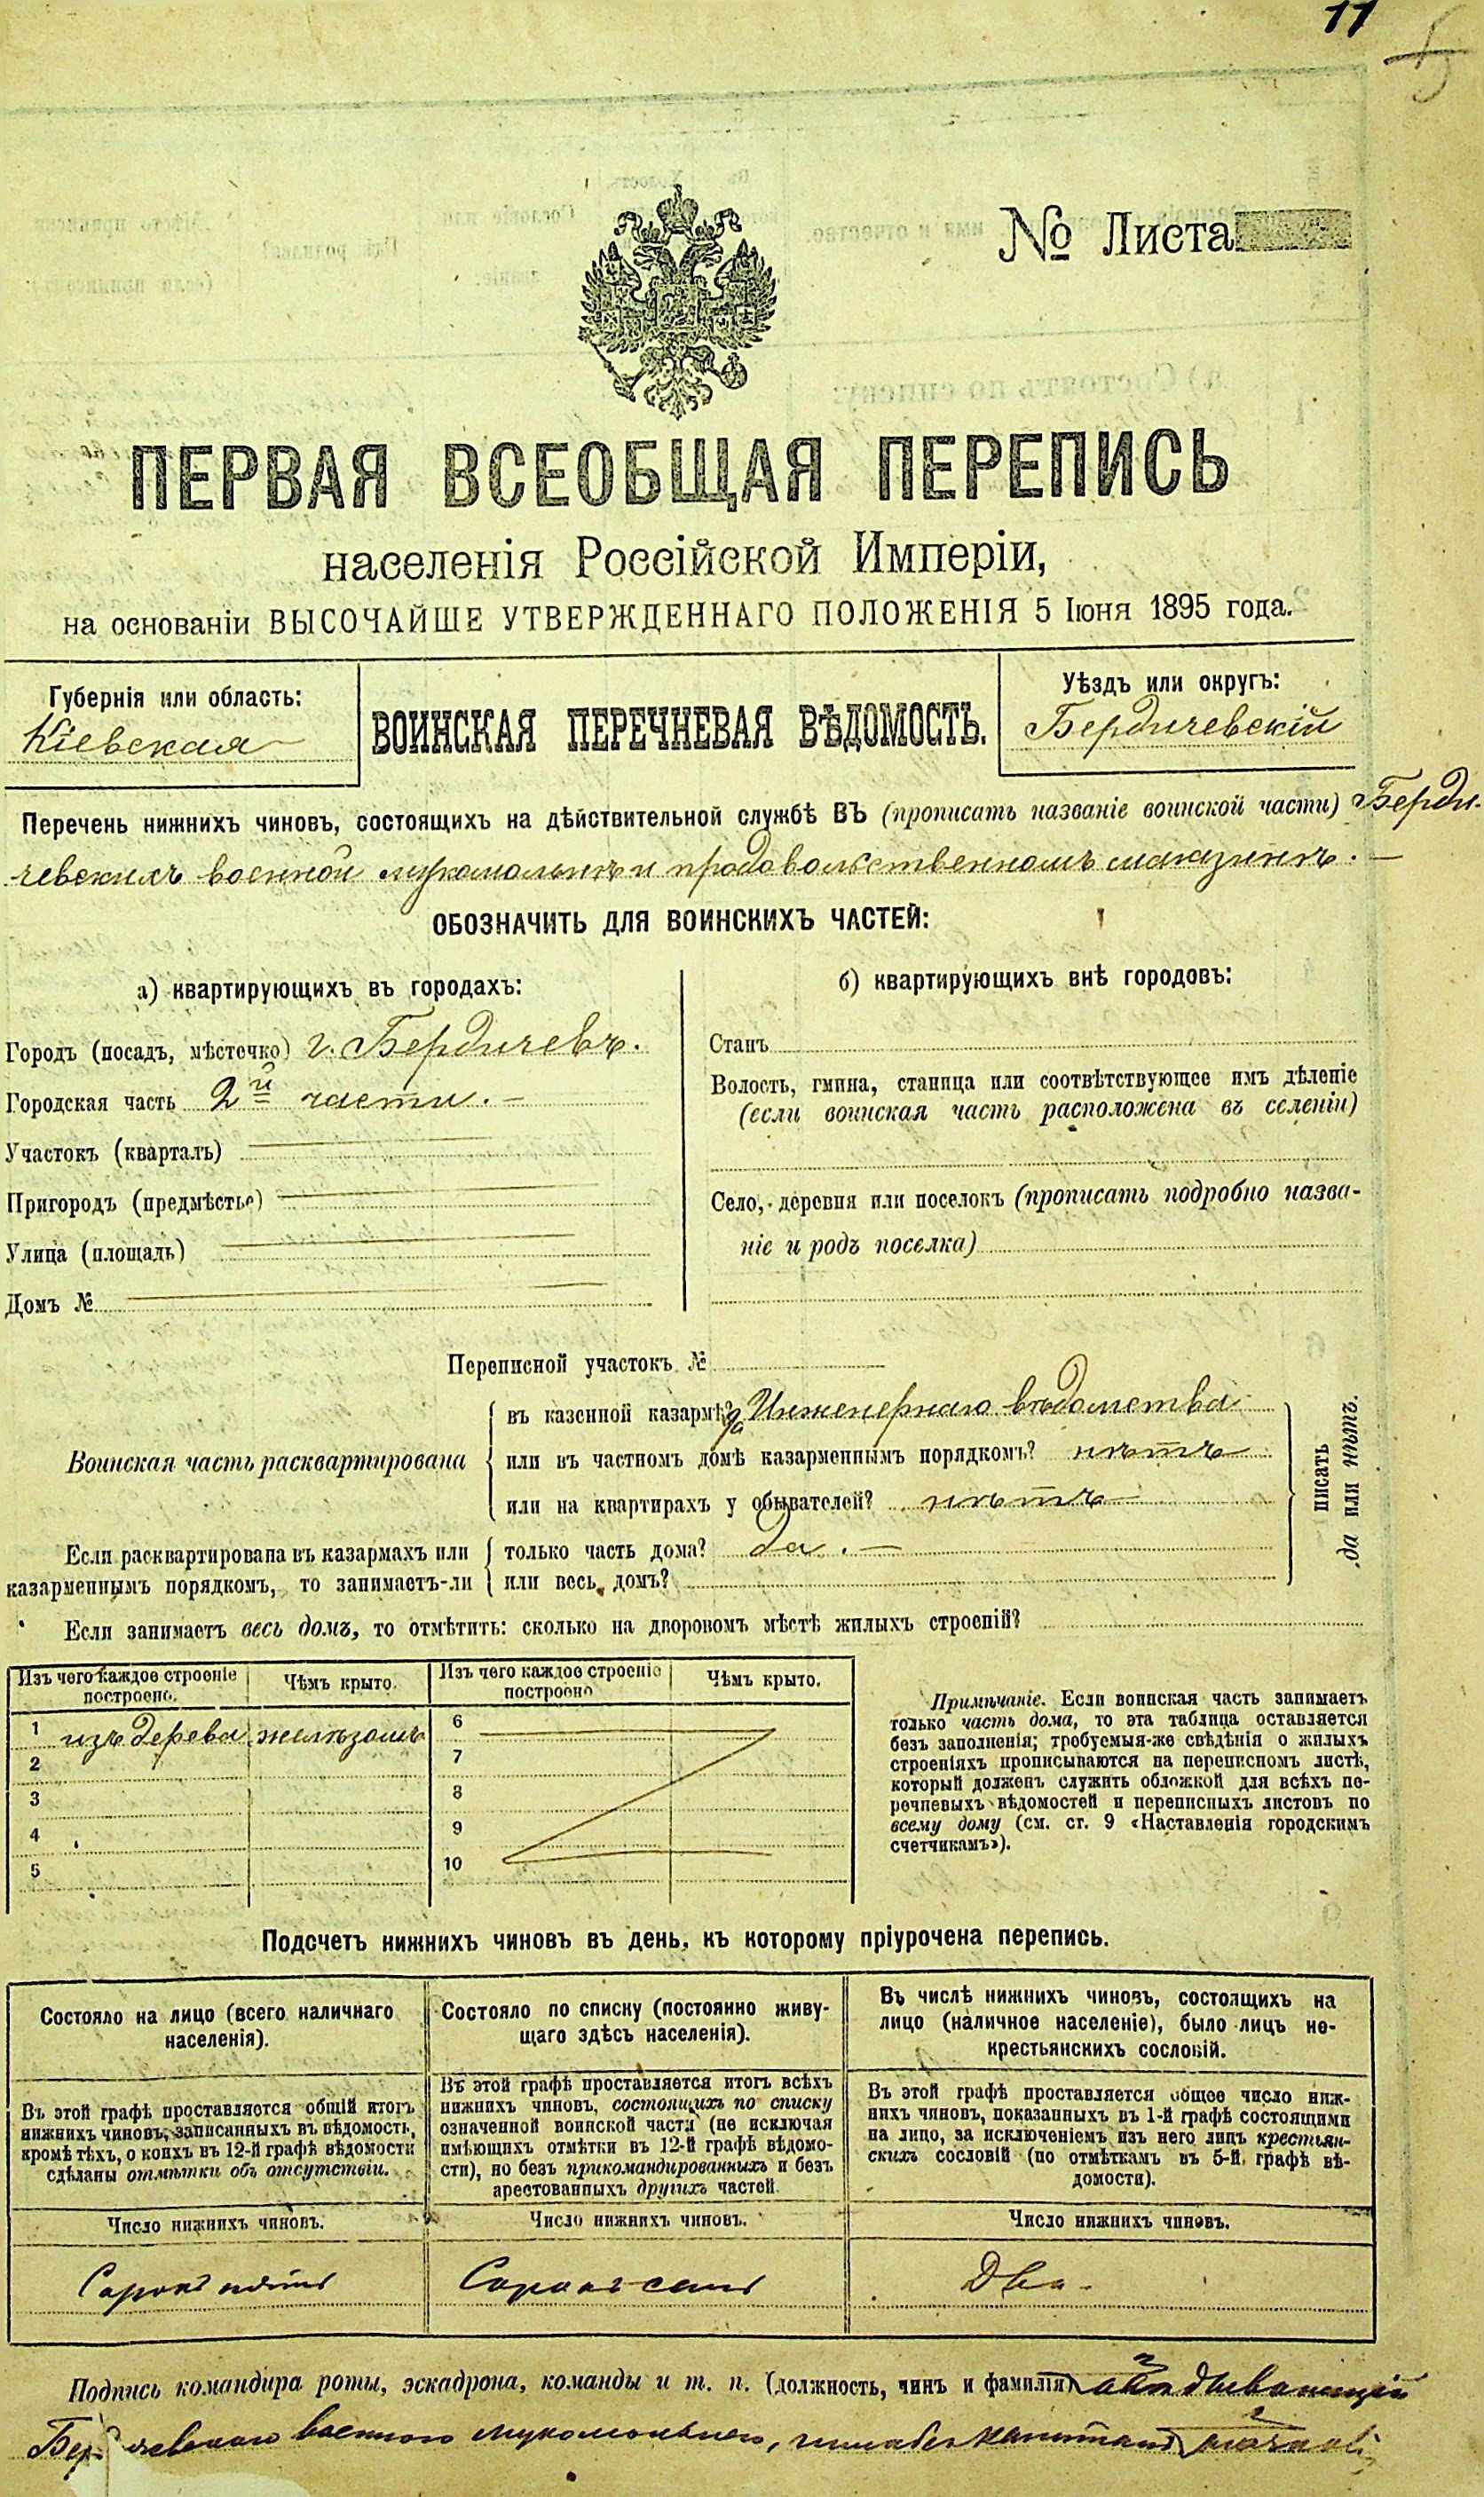 11
№ Листа
ПЕРВАЯ ВСЕОБЩАЯ ПЕРЕПИСЬ
населенія Россійской Имперіи,
на основаніи ВЫСОЧАЙШЕ УТВЕРЖДЕННАГО ПОЛОЖЕНІЯ 5 Іюня 1895 года.
Губернія или область:
Кіевская
ВОИНСКАЯ ПЕРЕЧНЕВАЯ ВѢДОМОСТЬ.
Уѣздъ или округъ:
Бердичевскій
Перечень нижнихъ чиновъ, состоящихъ на дѣйствительной службѣ ВЪ (прописать названіе воинской части) Берди-
чевскихъ военной мукомольнѣ и продовольственномъ магазинѣ.
ОБОЗНАЧИТЬ ДЛЯ ВОИНСКИХЪ ЧАСТЕЙ:
а) квартирующихъ въ городахъ:
Городъ (посадъ, мѣстечко) г. Бердичевъ.
Городская часть 2й части.
Участокъ (кварталъ)
Пригородъ (предмѣстье)
Улица (площадь)
Домъ №
б) квартирующихъ внѣ городовъ:
Станъ
Волость, гмина, станица или соотвѣтствующее имъ дѣленіе
(если воинская часть расположена въ селеніи)
Село, деревня или поселокъ (прописать подробно назва-
ніе и родъ поселка)
Переписной участокъ №
Воинская часть расквартирована
въ казенной казармѣ? да Инженернаго вѣдомства
или въ частномъ домѣ казарменнымъ порядкомъ? нѣтъ
или на квартирахъ у обывателей? нѣтъ
Если расквартирована въ казармахъ или
казарменнымъ порядкомъ, то занимаетъ-ли
только часть дома? да.
или весь домъ?
писать
да или нѣтъ.
Если занимаетъ весь домъ, то отмѣтить: сколько на дворовомъ мѣстѣ жилыхъ строеній?
Изъ чего каждое строеніе
построено.
Чѣмъ крыто.
Изъ чего каждое строеніе
построено
Чѣмъ крыто.
1 изъ дерева желѣзомъ
2
3
4
5
6
7
8
9
10
Примѣчаніе. Если воинская часть занимаетъ
только часть дома, то эта таблица оставляется
безъ заполненія; требуемыя-же свѣдѣнія о жилыхъ
строеніяхъ прописываются на переписномъ листѣ,
который долженъ служить обложкой для всѣхъ пе-
речневыхъ вѣдомостей и переписныхъ листовъ по
всему дому (см. ст. 9 «Наставленія городскимъ
счетчикамъ»).
Подсчетъ нижнихъ чиновъ въ день, къ которому пріурочена перепись.
Состояло на лицо (всего наличнаго
населенія).
Въ этой графѣ проставляется общій итогъ
нижнихъ чиновъ, записанныхъ въ вѣдомость,
кромѣ тѣхъ, о коихъ въ 12-й графѣ вѣдомости
сдѣланы отмѣтки объ отсутствіи.
Число нижнихъ чиновъ.
Сорокъ пять
Состояло по списку (постоянно живу-
щаго здѣсь населенія).
Въ этой графѣ проставляется итогъ всѣхъ
нижнихъ чиновъ, состоящихъ по списку
означенной воинской части (не исключая
имѣющихъ отмѣтки въ 12-й графѣ вѣдомо-
сти), но безъ прикомандированныхъ и безъ
арестованныхъ другихъ частей.
Число нижнихъ чиновъ.
Сорокъ семь
Въ числѣ нижнихъ чиновъ, состоящихъ на
лицо (наличное населеніе), было лицъ не-
крестьянскихъ сословій.
Въ этой графѣ проставляется общее число ниж-
нихъ чиновъ, показанныхъ въ 1-й графѣ состоящими
на лицо, за исключеніемъ изъ него лицъ крестьян-
скихъ сословій (по отмѣткамъ въ 5-й графѣ вѣ-
домости).
Число нижнихъ чиновъ.
Два
Подпись командира роты, эскадрона, команды и т. п. (должность, чинъ и фамилія) Завѣдывающій
военного мукомольнею, штабсъ капитанъ